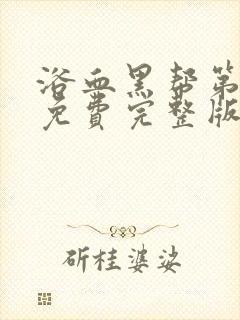 浴血黑帮第
免费完整版
斫桂婆娑